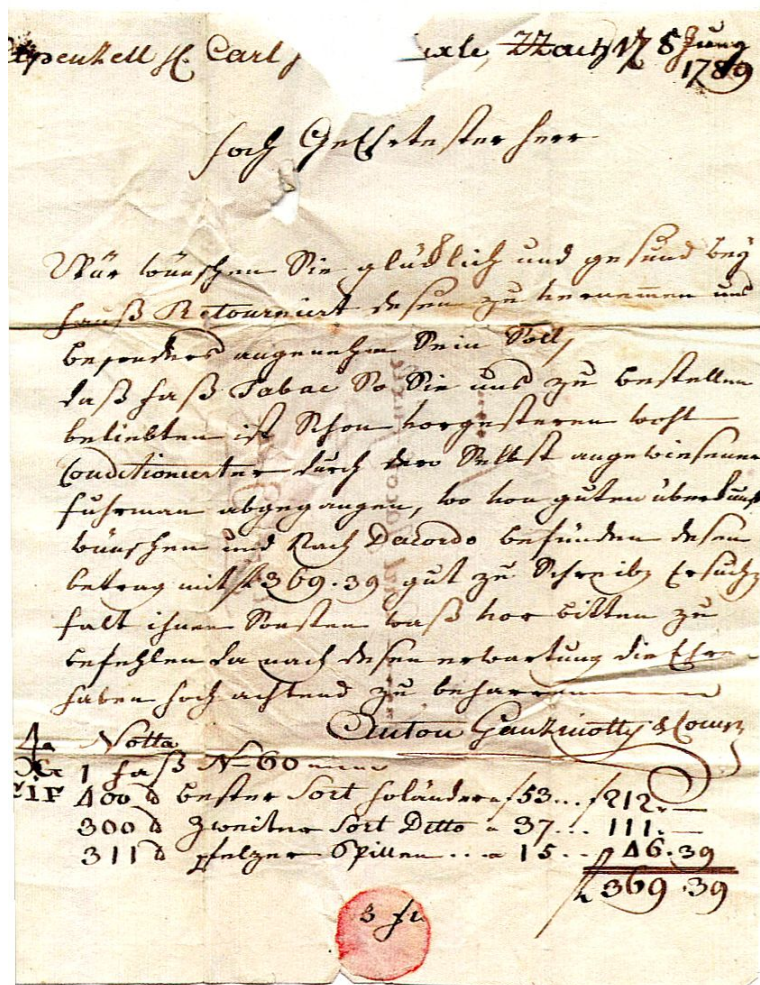 Carl
Juny
1789
Hoch GeEhrtester Herr
Wür wünschen Sie glücklich und gesund bey
Hauß Retournürt desen zu vernemen uns
besonders angenehm Sein Soll,
daß Faß Tabac So Sie uns zu bestellen
beliebten ist Schon vorgesteren wohl
Conditionierter durch dero Selbst angewiesenen
fuhrman abgegangen, wo von guten überkunft
wünschen und Nach Dacordo befünden desen
betrag mit f 369.39 gut zu Schreiben Ersuchen
falt ihnen Sonsten waß vor bitten zu
befehlen da nach desen erwartung die Ehre
haben hoch achtend zu beharren
Anton
Notta
1 Faß No 60
400 bester Sort holänder a f 53... f 212.—
300 zweiter Sort Ditto a 37... 111.—
311 pfelzer Spillen... a 15.. 46.39
f 369.39
3